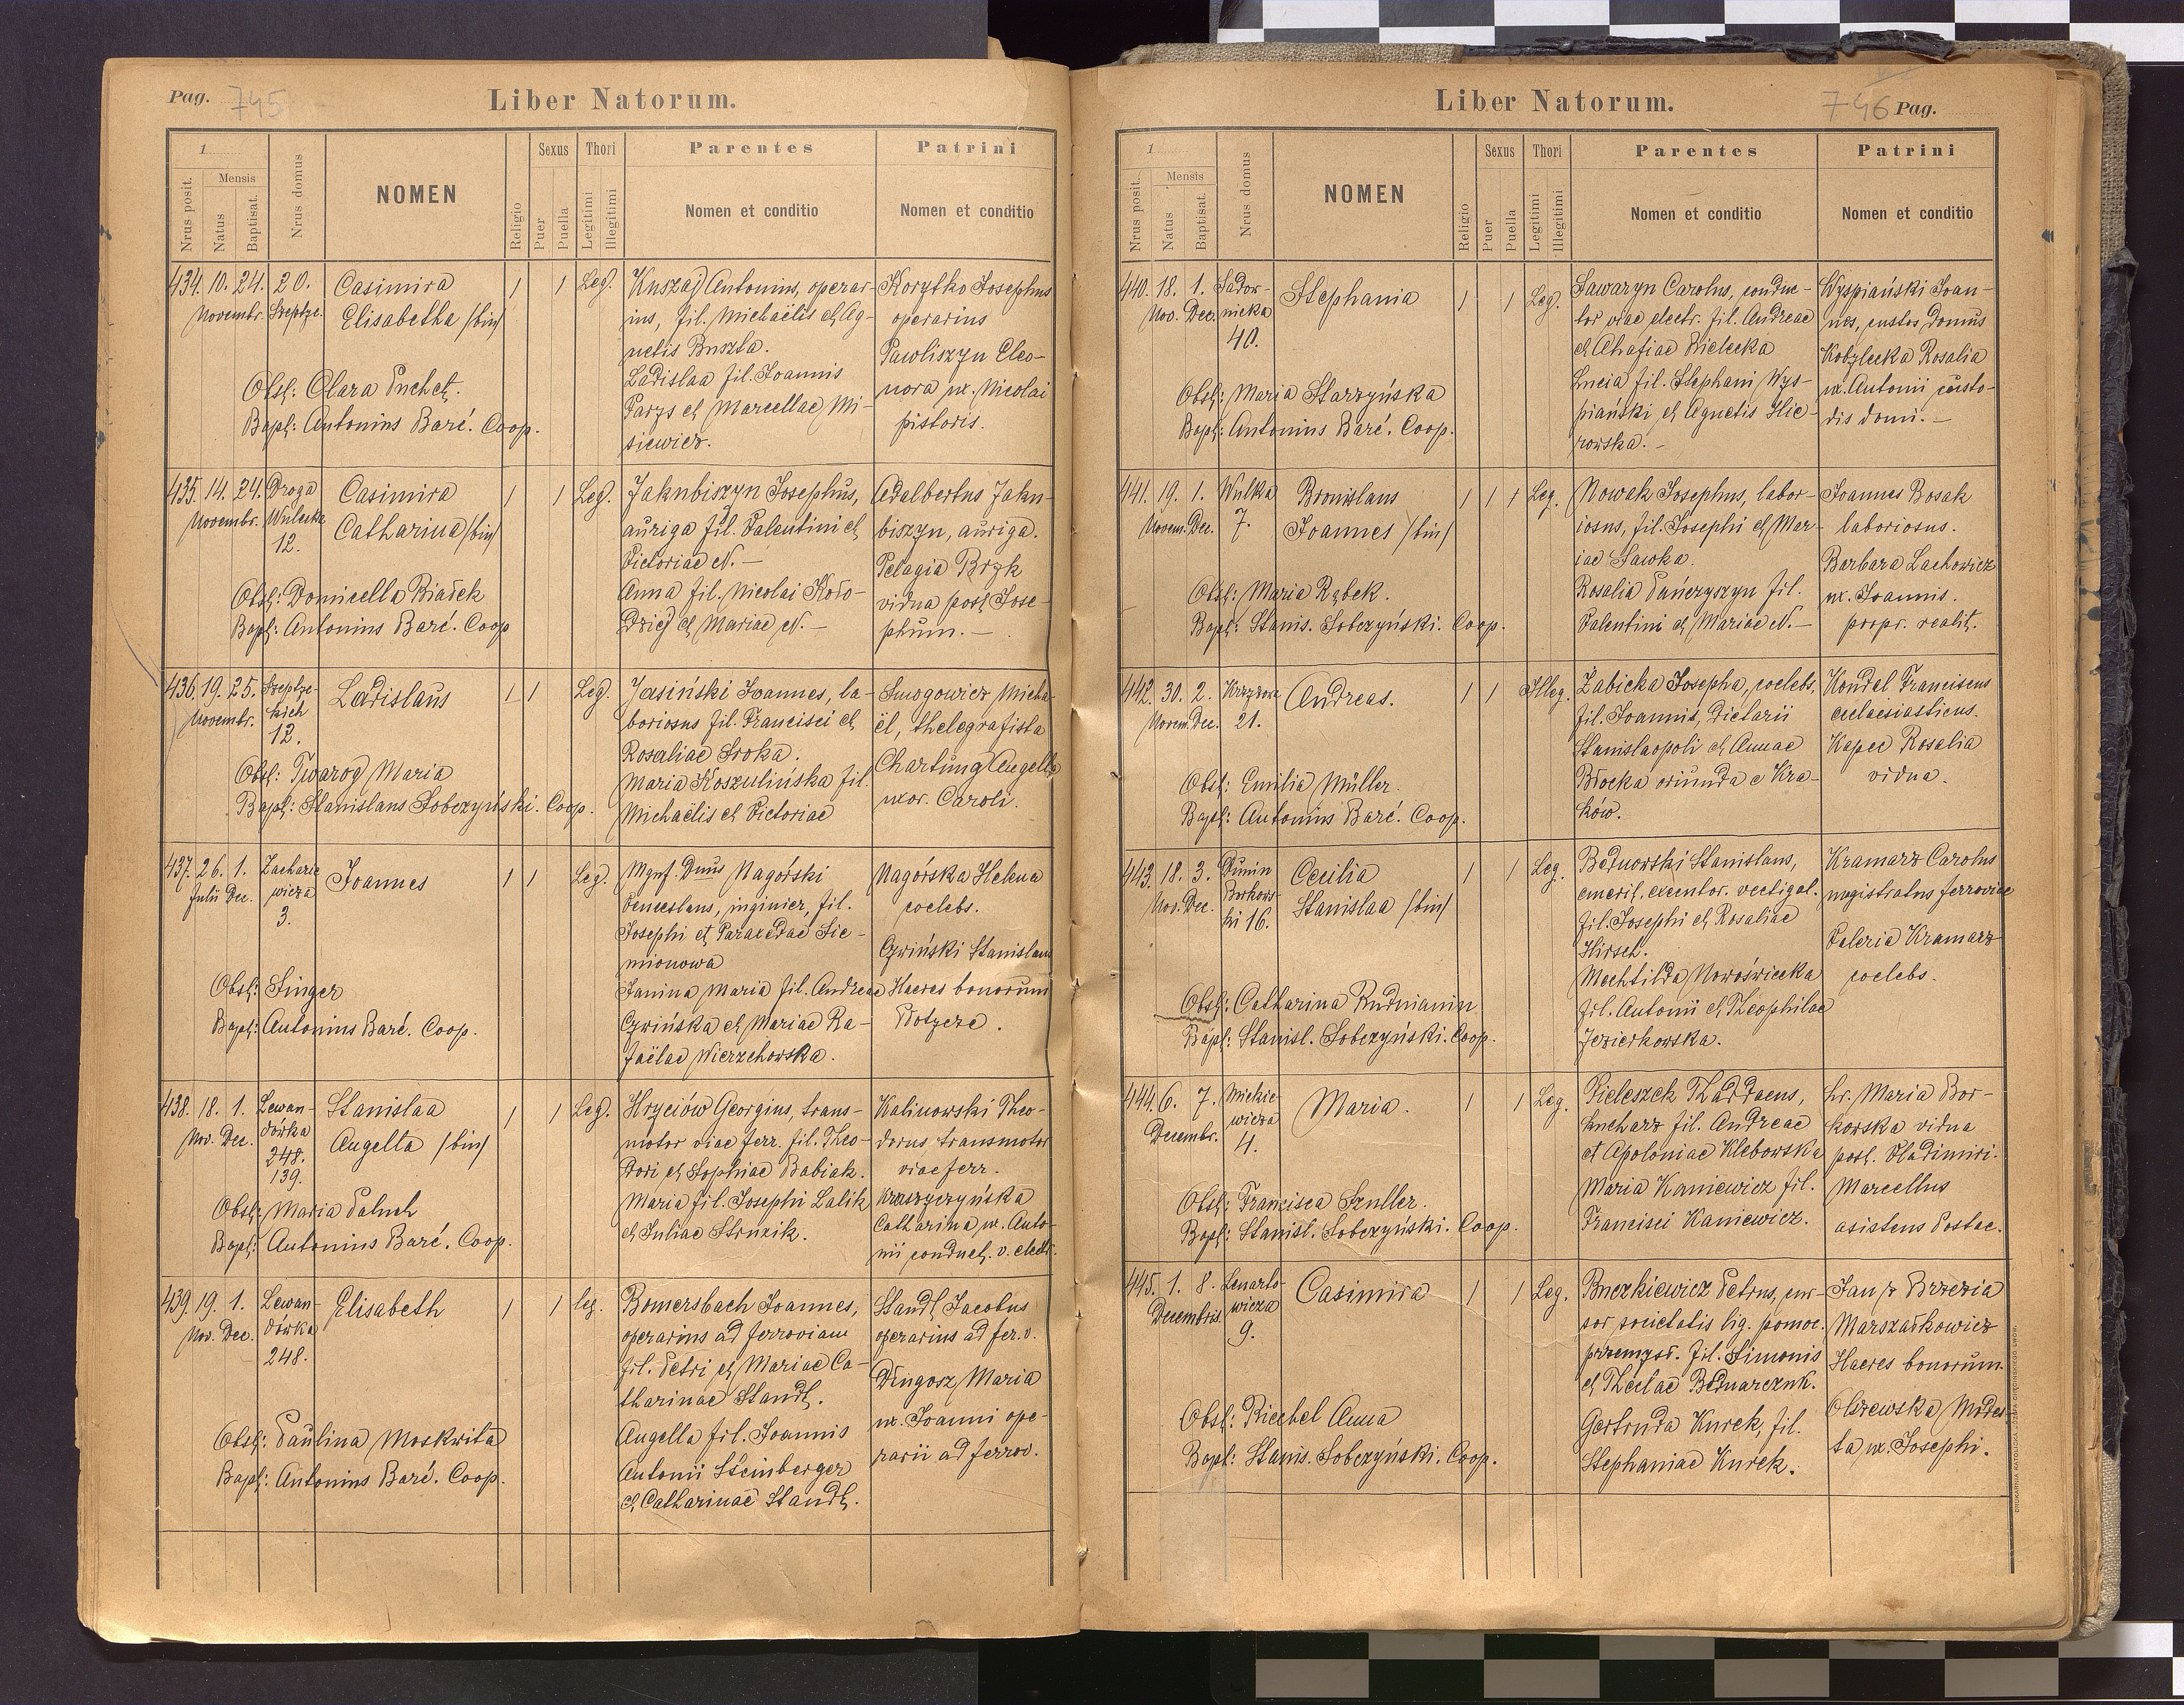 Pag. 745
Liber Natorum.
1.
Nrus posit.
Mensis
Natus
Baptisat.
Nrus domus
NOMEN
Religio
Sexus
Puer
Puella
Thori
Legitimi
Illegitimi
Parentes
Nomen et conditio
Patrini
Nomen et conditio
434. 10. 24. 20. Casimira 1 1 Leg. Kuszaj Antonius, operar- Korytko Josephus
Novembr. Szeptyc. Elisabetha /bin/ ius, fil. Michaëlis et Ag- operarius
netis Buszta. Pawliszyn Eleo-
Obst: Clara Puchet. Ladislaa fil. Joannis nora ux. Nicolai
Bapt: Antonius Baré. Coop. Parys et Marcellae Mi- pistoris.
siewicz.
435. 14. 24. Droga Casimira 1 1 Leg. Jakubiszyn Josephus, Adalbertus Jaku-
Novembr. Wulecka Catharina /bin/ auriga fil. Valentini et biszyn, auriga.
12. Victoriae N. — Pelagia Bryk
Obst: Domicella Białek Anna fil. Nicolai Koło- vidua post Jose-
Bapt: Antonius Baré. Coop dziej et Mariae N. — phum. —
436. 19. 25. Szeptyc- Ladislaus 1 1 Leg. Jasiński Joannes, la- Smogowicz Micha-
Novembr. kich boriosus fil. Francisci et ël, thelegrafista
12. Rosaliae Sroka. Chartung Angella
Obst: Twarog Maria Maria Koszulińska fil. uxor. Caroli.
Bapt: Stanislaus Sobczyński. Coop. Michaëlis et Victoriae
437. 26. 1. Zacharie- Joannes 1 1 Leg. Mgnf. Dnus Nagórski Nagórska Helena
Julii Dec. wicza Venceslaus, inginier, fil. coelebs.
3. Josephi et Paraxedae Sie- Czwiński Stanislaus
mionowa
Obst: Singer Janina Maria fil. Andreae Haeres bonorum
Bapt: Antonius Baré. Coop. Czwińska et Mariae Ra-
faëlae Wierzchowska.
438. 18. 1. Lewan- Stanislaa 1 1 Leg. Hryciów Georgius, trans- Kalinowski Theo-
Nov. Dec. dówka Angella /bin/ motor viae ferr. fil. Theo- dorus transmotor
248. dori et Sophiae Babiak. viae ferr.
139. Maria fil. Josephi Lalik Kraszyczyńska
Obst: Maria Paluch et Juliae Struzik. Catharina ux. Anto-
Bapt: Antonius Baré. Coop. nii conduct. v. electr.
439. 19. 1. Lewan- Elisabeth 1 1 leg. Bomersbach Joannes, Standt Jacobus
Nov. Dec. dówka operarius ad ferroviam operarius ad fer. v.
248. fil. Petri et Mariae Ca- Długosz Maria
tharinae Standt. ux. Joanni ope-
Obst: Paulina Moskwita Angella fil. Joannis rarii ad ferrov.
Bapt: Antonius Baré. Coop. Antonii Steinberger
et Catharinae Standt.
Liber Natorum.
746 Pag.
1.
Nrus posit.
Mensis
Natus
Baptisat.
Nrus domus
NOMEN
Religio
Sexus
Puer
Puella
Thori
Legitimi
Illegitimi
Parentes
Nomen et conditio
Patrini
Nomen et conditio
440. 18. 1. Sadow- Stephania 1 1 Leg. Sawaryn Carolus, conduc- Wyspiański Joan-
Nov. Dec. nicka tor viae electr. fil. Andreae nes, custos domus
40. et Ahafiae Bielecka Kobylecka Rosalia
Obst: Maria Starzyńska Lucia fil. Stephani Wys- ux. Antonii custo-
Bapt: Antonius Baré. Coop. piański et Agnetis Hie- dis domi. —
rowska. —
441. 19. 1. Wulka Bronislaus 1 1 1 Leg. Nowak Josephus, labor- Joannes Bosak
Novem. Dec. 7. Joannes /bin/ iosus, fil. Josephi et Mar- laboriosus.
iae Sawka. Barbara Lachowicz
Obst: Maria Rąbek. Rosalia Dańczyszyn fil. ux. Joannis.
Bapt: Stanis. Sobczyński. Coop. Valentini et Mariae N. — propr. realit.
442. 30. 2. Krzyżowa Andreas. 1 1 Illeg. Żabicka Josepha, coelebs, Kondal Franciscus
Novem. Dec. 21. fil. Joannis, dietarii eclaesiasticus.
Stanislaopoli et Annae Kapec Rosalia
Obst: Emilia Müller. Błocka oriunda e Kra- vidua.
Bapt: Antonius Baré. Coop. ków.
443. 18. 3. Dunin Cecilia 1 1 Leg. Bednowski Stanislaus, Kramarz Carolus
Nov. Dec. Borkows- Stanislaa /bin/ emerit. executor. vectigal. magistratus ferroviae
ki 16. fil. Josephi et Rosaliae Valeria Kramarz
Hirsch. coelebs.
Mechtilda Nowoświecka
Obst: Catharina Rudnianin fil. Antonii et Theophilae
Bapt: Stanisl. Sobczyński. Coop. Jezierkowska.
444. 6. 7. Mickie- Maria. 1 1 Leg. Pieleszek Thaddaeus, hr. Maria Bor-
Decembr. wicza kucharz fil. Andreae kowska vidua
4. et Apoloniae Klebowska post. Vladimiri.
Obst: Francisca Szuller. Maria Kaniewicz fil. Marcellus
Bapt: Stanisl. Sobczyński. Coop. Francisci Kaniewicz. asistens Postae.
445. 1. 8. Lenarto- Casimira 1 1 Leg. Buczkiewicz Petrus, cur- Jan z Brzezia
Decembris. wicza sor societatis lig. pomoc. Marszałkowicz
9. przemysł. fil. Simonis Haeres bonorum.
et Theclae Bednarczuk. Olszewska Modes-
Obst: Riechel Anna Gertruda Kurek, fil. ta ux. Josephi.
Bapt: Stanis. Sobczyński. Coop. Stephaniae Kurek.